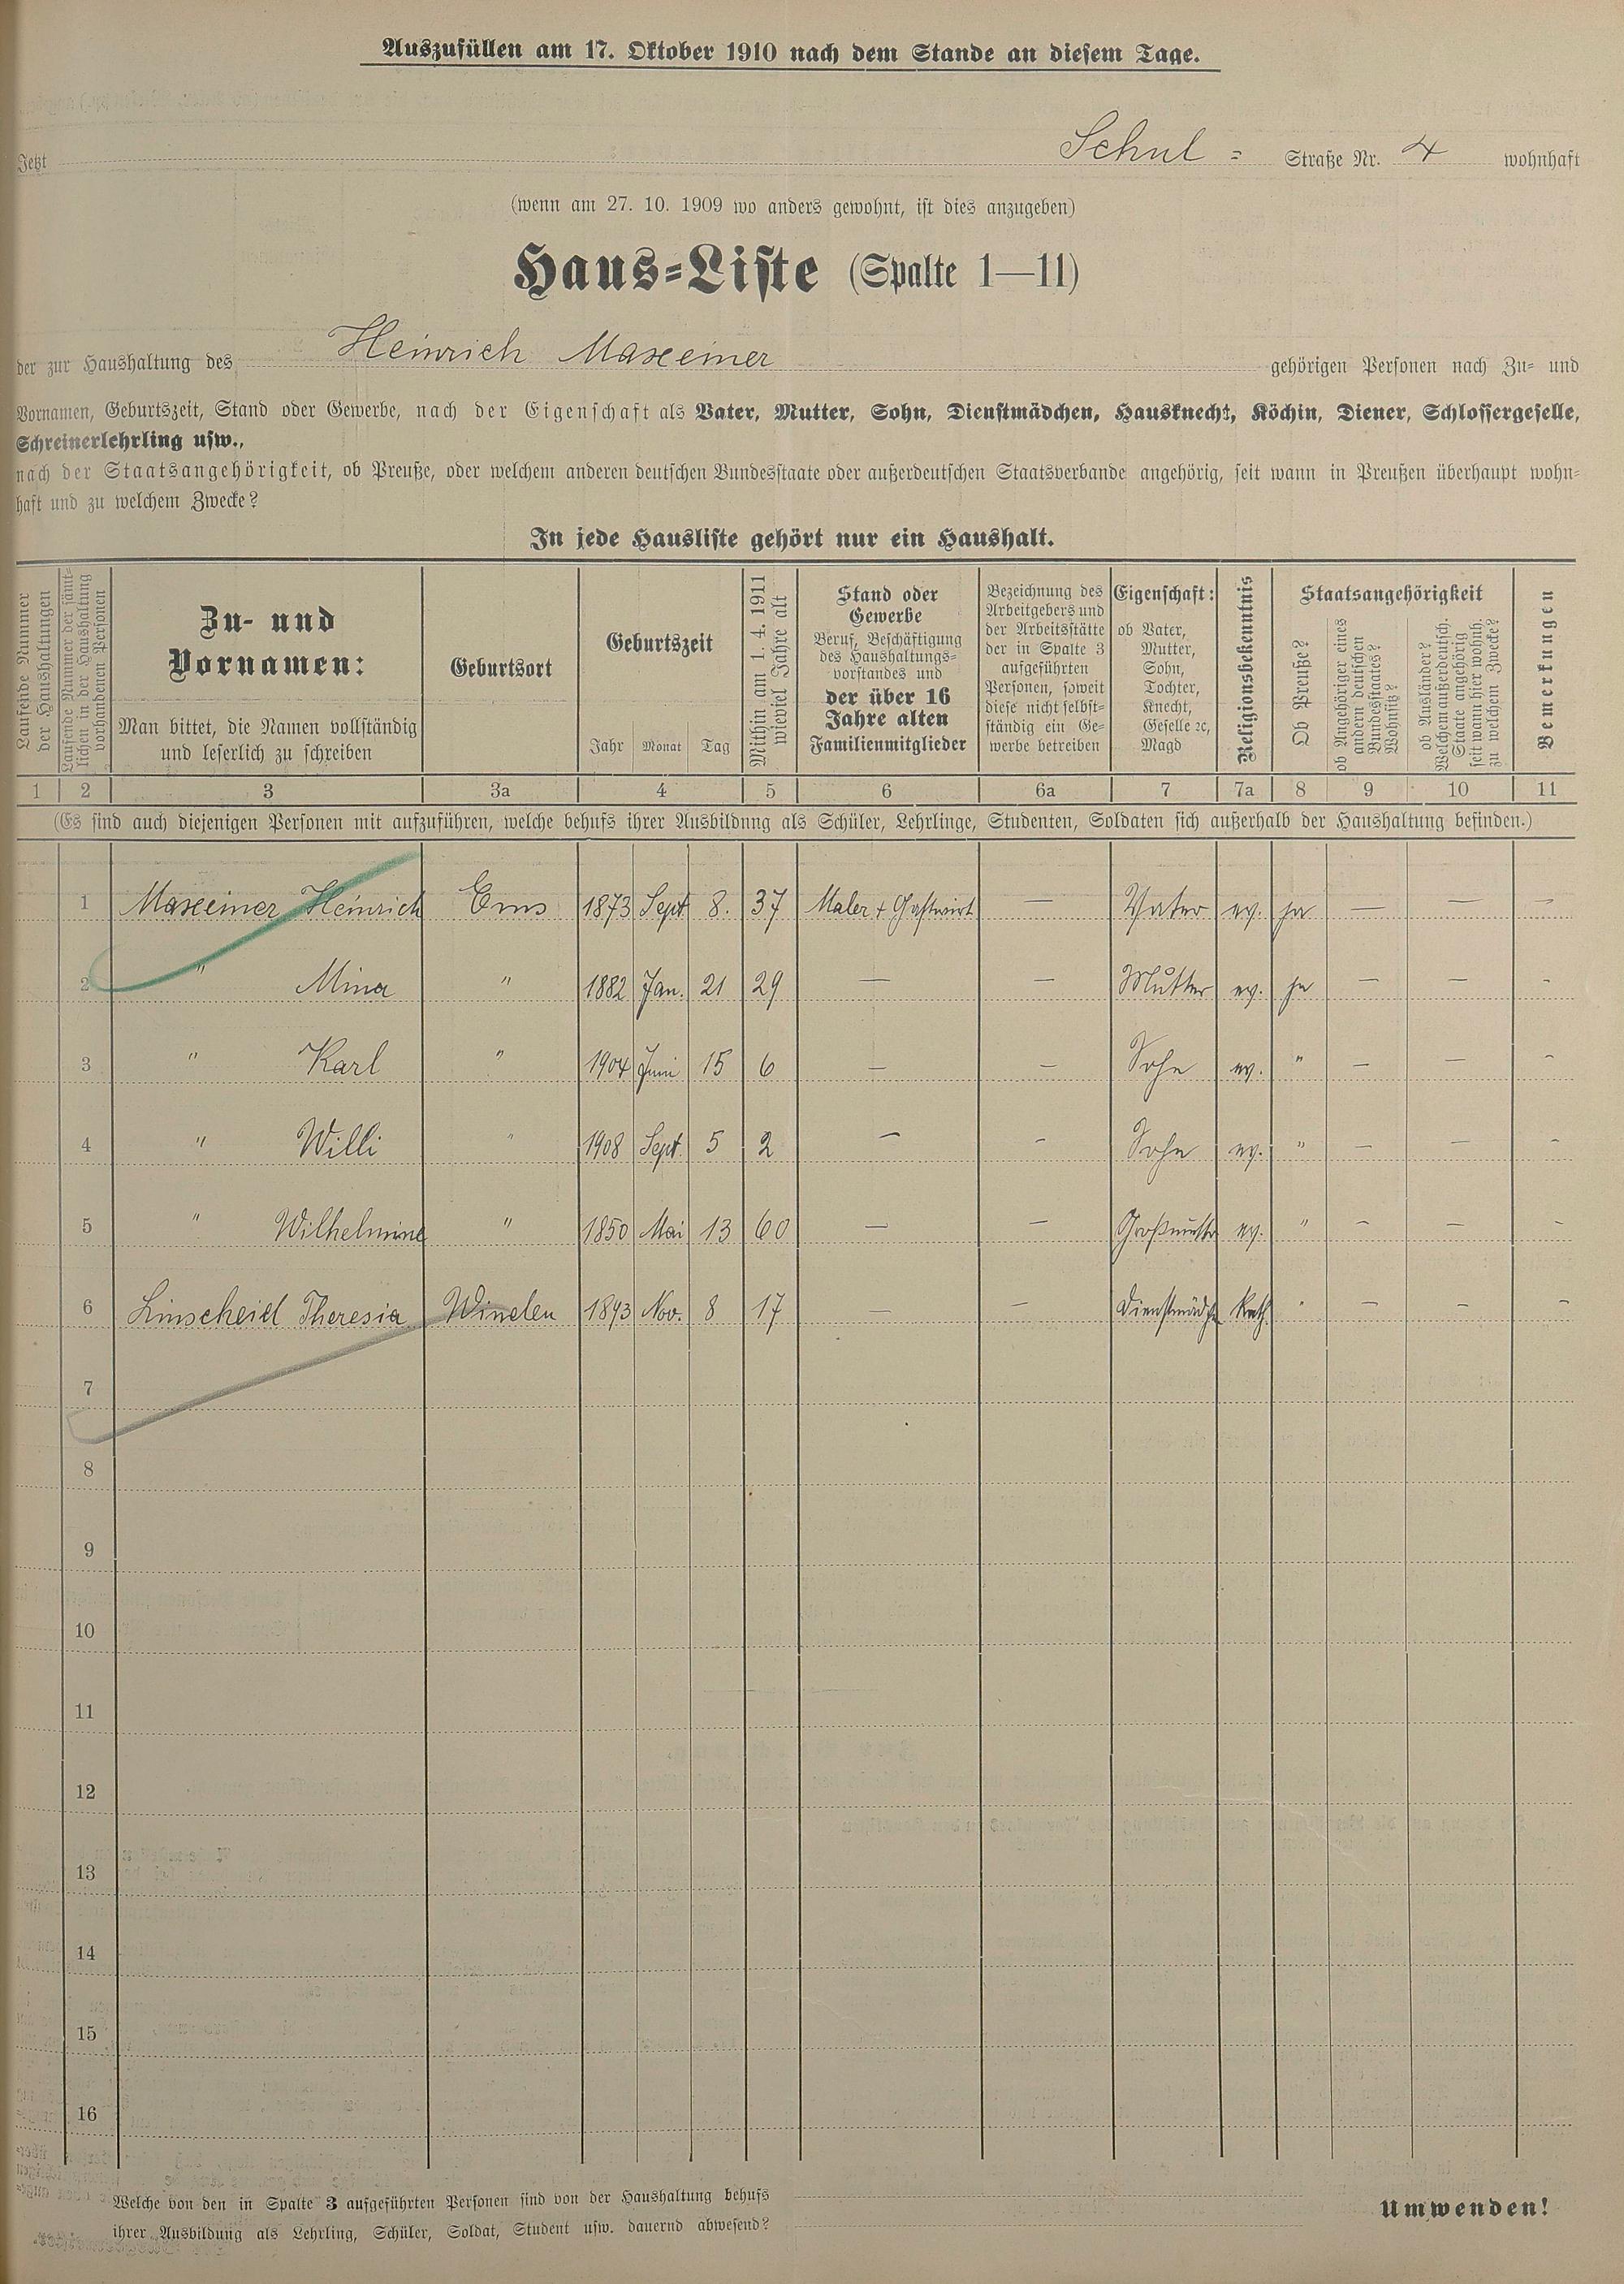 Auszufüllen am 17. Oktober 1910 nach dem Stande an diesem Tage.
Jetzt Schul= Straße Nr. 4 wohnhaft
(wenn am 27. 10. 1909 wo anders gewohnt, ist dies anzugeben)
Haus=Liste (Spalte 1—11)
der zur Haushaltung des Heinrich Maxeiner gehörigen Personen nach Zu= und
Vornamen, Geburtszeit, Stand oder Gewerbe, nach der Eigenschaft als Vater, Mutter, Sohn, Dienstmädchen, Hausknecht, Köchin, Diener, Schlossergeselle,
Schreinerlehrling usw.,
nach der Staatsangehörigkeit, ob Preuße, oder welchem anderen deutschen Bundesstaate oder außerdeutschen Staatsverbande angehörig, seit wann in Preußen überhaupt wohn=
haft und zu welchem Zwecke?
In jede Hausliste gehört nur ein Haushalt.
Laufende Nummer
der Haushaltungen
Laufende Nummer der sämt=
lichen in der Haushaltung
vorhandenen Personen
Zu- und
Vornamen:
Man bittet, die Namen vollständig
und leserlich zu schreiben
Geburtsort
Geburtszeit
Jahr Monat Tag
Mithin am 1. 4. 1911
wieviel Jahre alt
Stand oder
Gewerbe
Beruf, Beschäftigung
des Haushaltungs=
vorstandes und
der über 16
Jahre alten
Familienmitglieder
Bezeichnung des
Arbeitgebers und
der Arbeitsstätte
der in Spalte 3
aufgeführten
Personen, soweit
diese nicht selbst=
ständig ein Ge=
werbe betreiben
Eigenschaft:
ob Vater,
Mutter,
Sohn,
Tochter,
Knecht,
Geselle ꝛc,
Magd
Religionsbekenntnis
Staatsangehörigkeit
Ob Preuße?
ob Angehöriger eines
andern deutschen
Bundesstaates?
Wohnsitz?
ob Ausländer?
Welchem außerdeutsch.
Staate angehörig
seit wann hier wohnh.
zu welchem Zwecke?
Bemerkungen
1 2 3 3a 4 5 6 6a 7 7a 8 9 10 11
(Es sind auch diejenigen Personen mit aufzuführen, welche behufs ihrer Ausbildung als Schüler, Lehrlinge, Studenten, Soldaten sich außerhalb der Haushaltung befinden.)
1 Maxeiner Heinrich Ems 1873 Sept 8. 37 Maler + Gastwirt — Vater ev. ja — — —
2 " Mina " 1882 Jan. 21 29 — — Mutter ev. ja — — -
3 " Karl " 1904 Juni 15 6 — — Sohn ev. " — — -
4 " Willi " 1908 Sept. 5 2 — - Sohn ev. " — — -
5 " Wilhelmine " 1850 Mai 13 60 — — Großmutter ev. " - — -
6 Linscheid Theresia Winden 1893 Nov. 8 17 — — Dienstmädch Kath. " — - -
7
8
9
10
11
12
13
14
15
16
Welche von den in Spalte 3 aufgeführten Personen sind von der Haushaltung behufs
ihrer Ausbildung als Lehrling, Schüler, Soldat, Student usw. dauernd abwesend?
Umwenden!